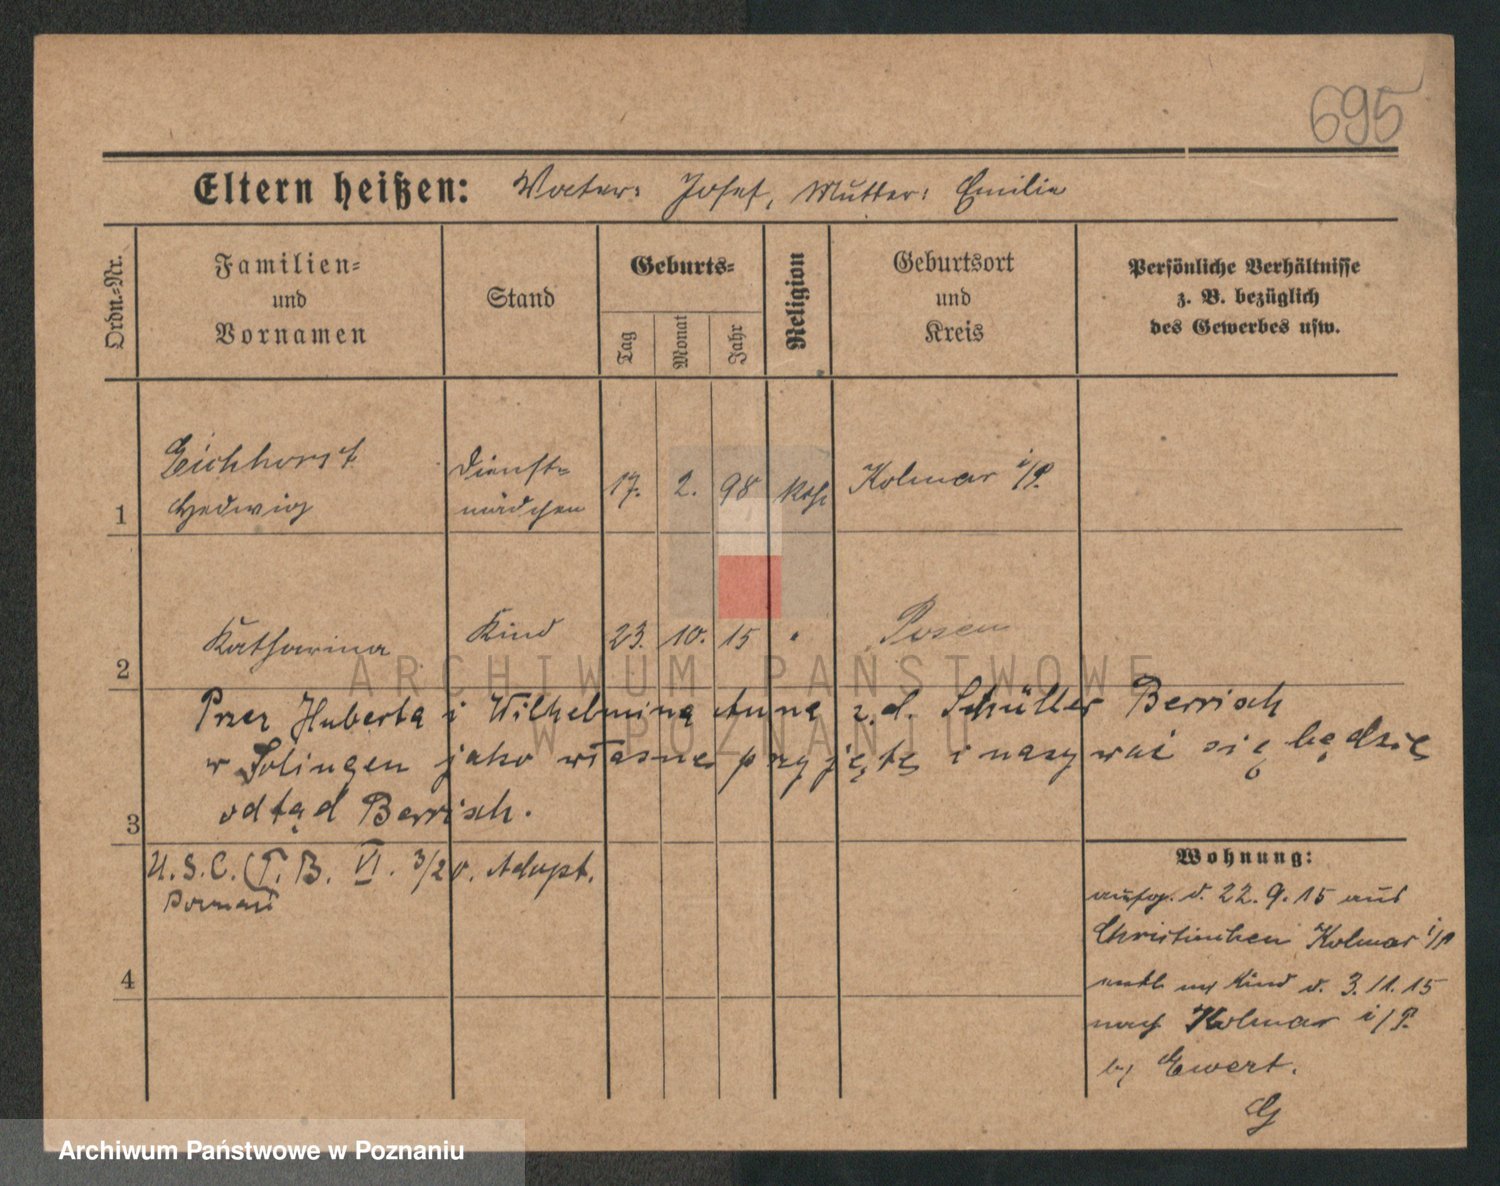 695
Eltern heißen: Vater: Josef, Mutter: Emilie
Ordn.-Nr.
Familien-
und
Vornamen
Stand
Geburts-
Tag
Monat
Jahr
Religion
Geburtsort
und
Kreis
Persönliche Verhältnisse
z. B. bezüglich
des Gewerbes usw.
1
Eichhorst
Hedwig
Dienst-
mädchen
17. 2. 98 kath
Kolmar i/P.
2
Katharina
Kind
23. 10. 15 "
Posen
Przez Huberta i Wilhelminą Anną z.d. Schüller Berrisch
w Solingen jako własne przyjętę i nazywać się będzie
3
odtąd Berrisch.
U.S.C. (T.B. VI. 3/20. Adopt.
Poznań
4
Wohnung:
aufg. v. 22.9.15 aus
Kolmar i/P
Kind v. 3.11.15
nach Kolmar i/P.
by Ewert.
ARCHIWUM PAŃSTWOWE
W POZNANIU
Archiwum Państwowe w Poznaniu